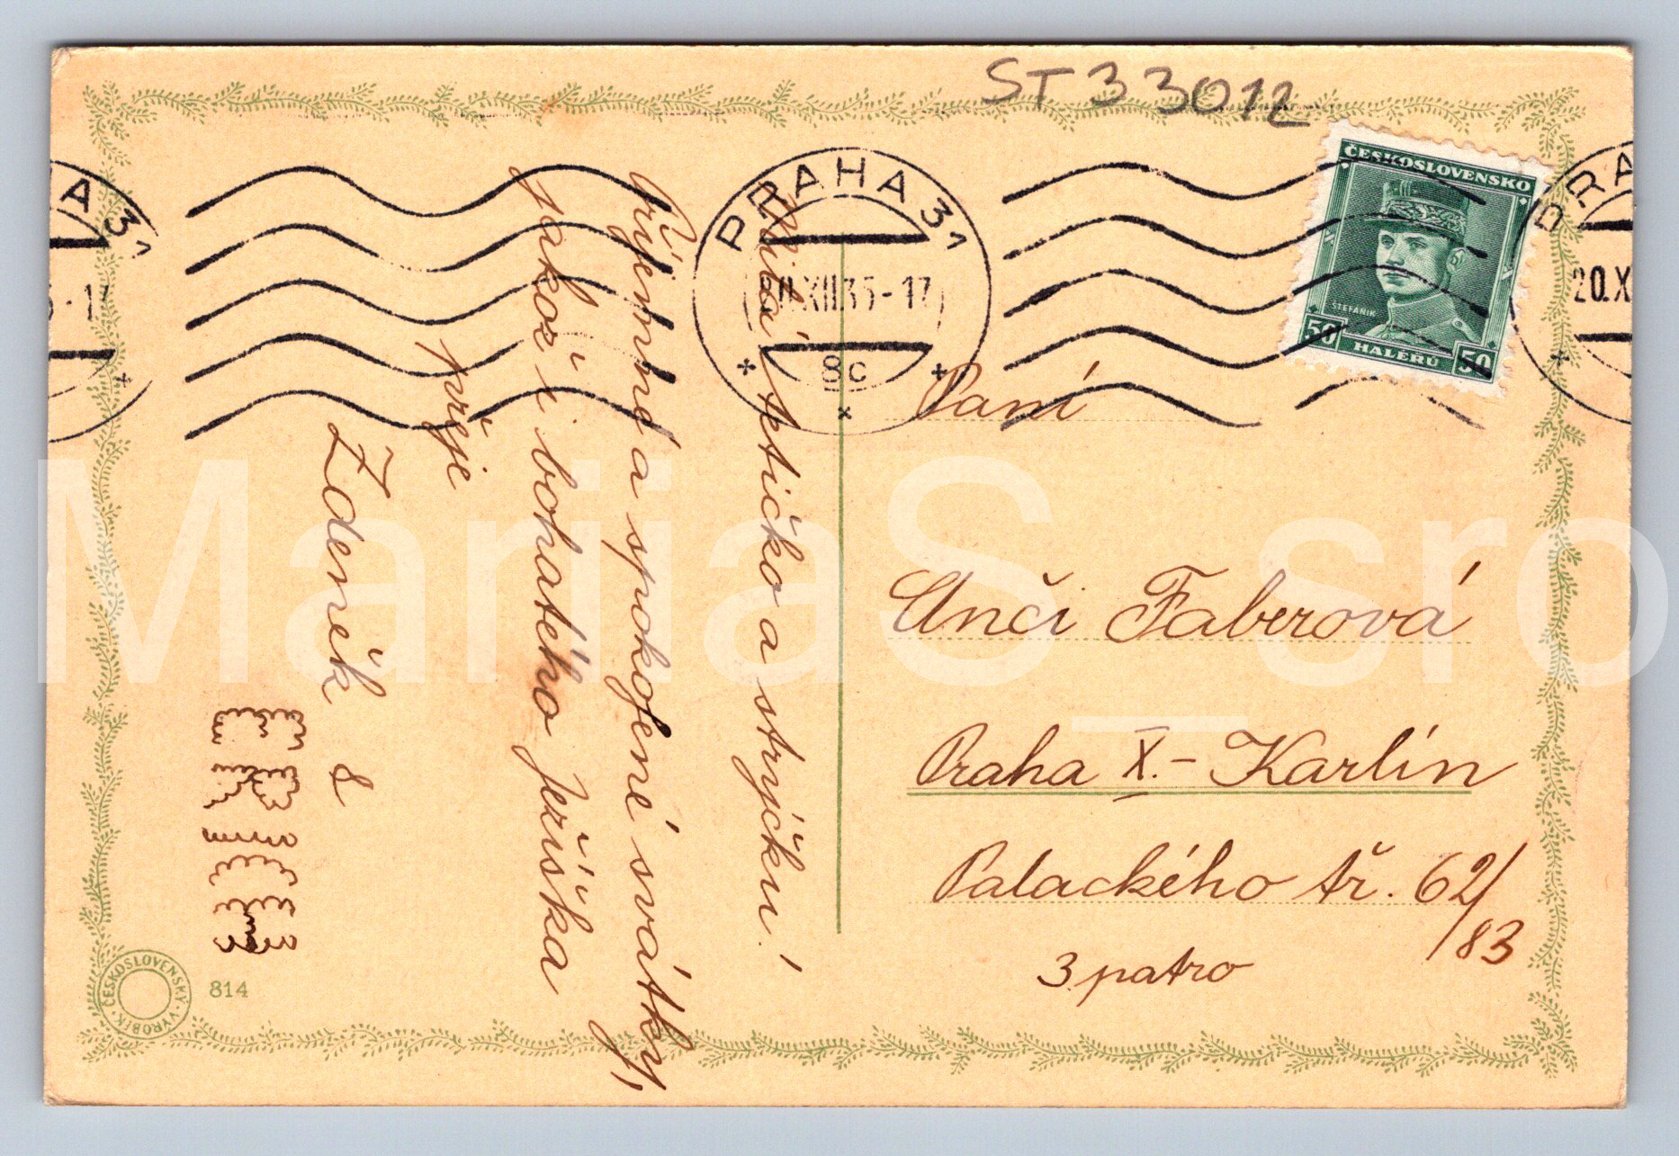 ST 33012
PRAHA 31
XII 35-17
8c
ČESKOSLOVENSKO
ŠTEFÁNIK
50 HALÉŘŮ 50
20.X
Milá tetičko a strýčku!
Příjemné a spokojené svátky,
jakož i bohatého Ježíška
přeje
Zdeněk &
Paní
Anči Faberová
Praha X. - Karlín
Palackého tř. 62/
/83
3. patro
ČESKOSLOVENSKÝ VÝROBEK
814
MariiaS_sro